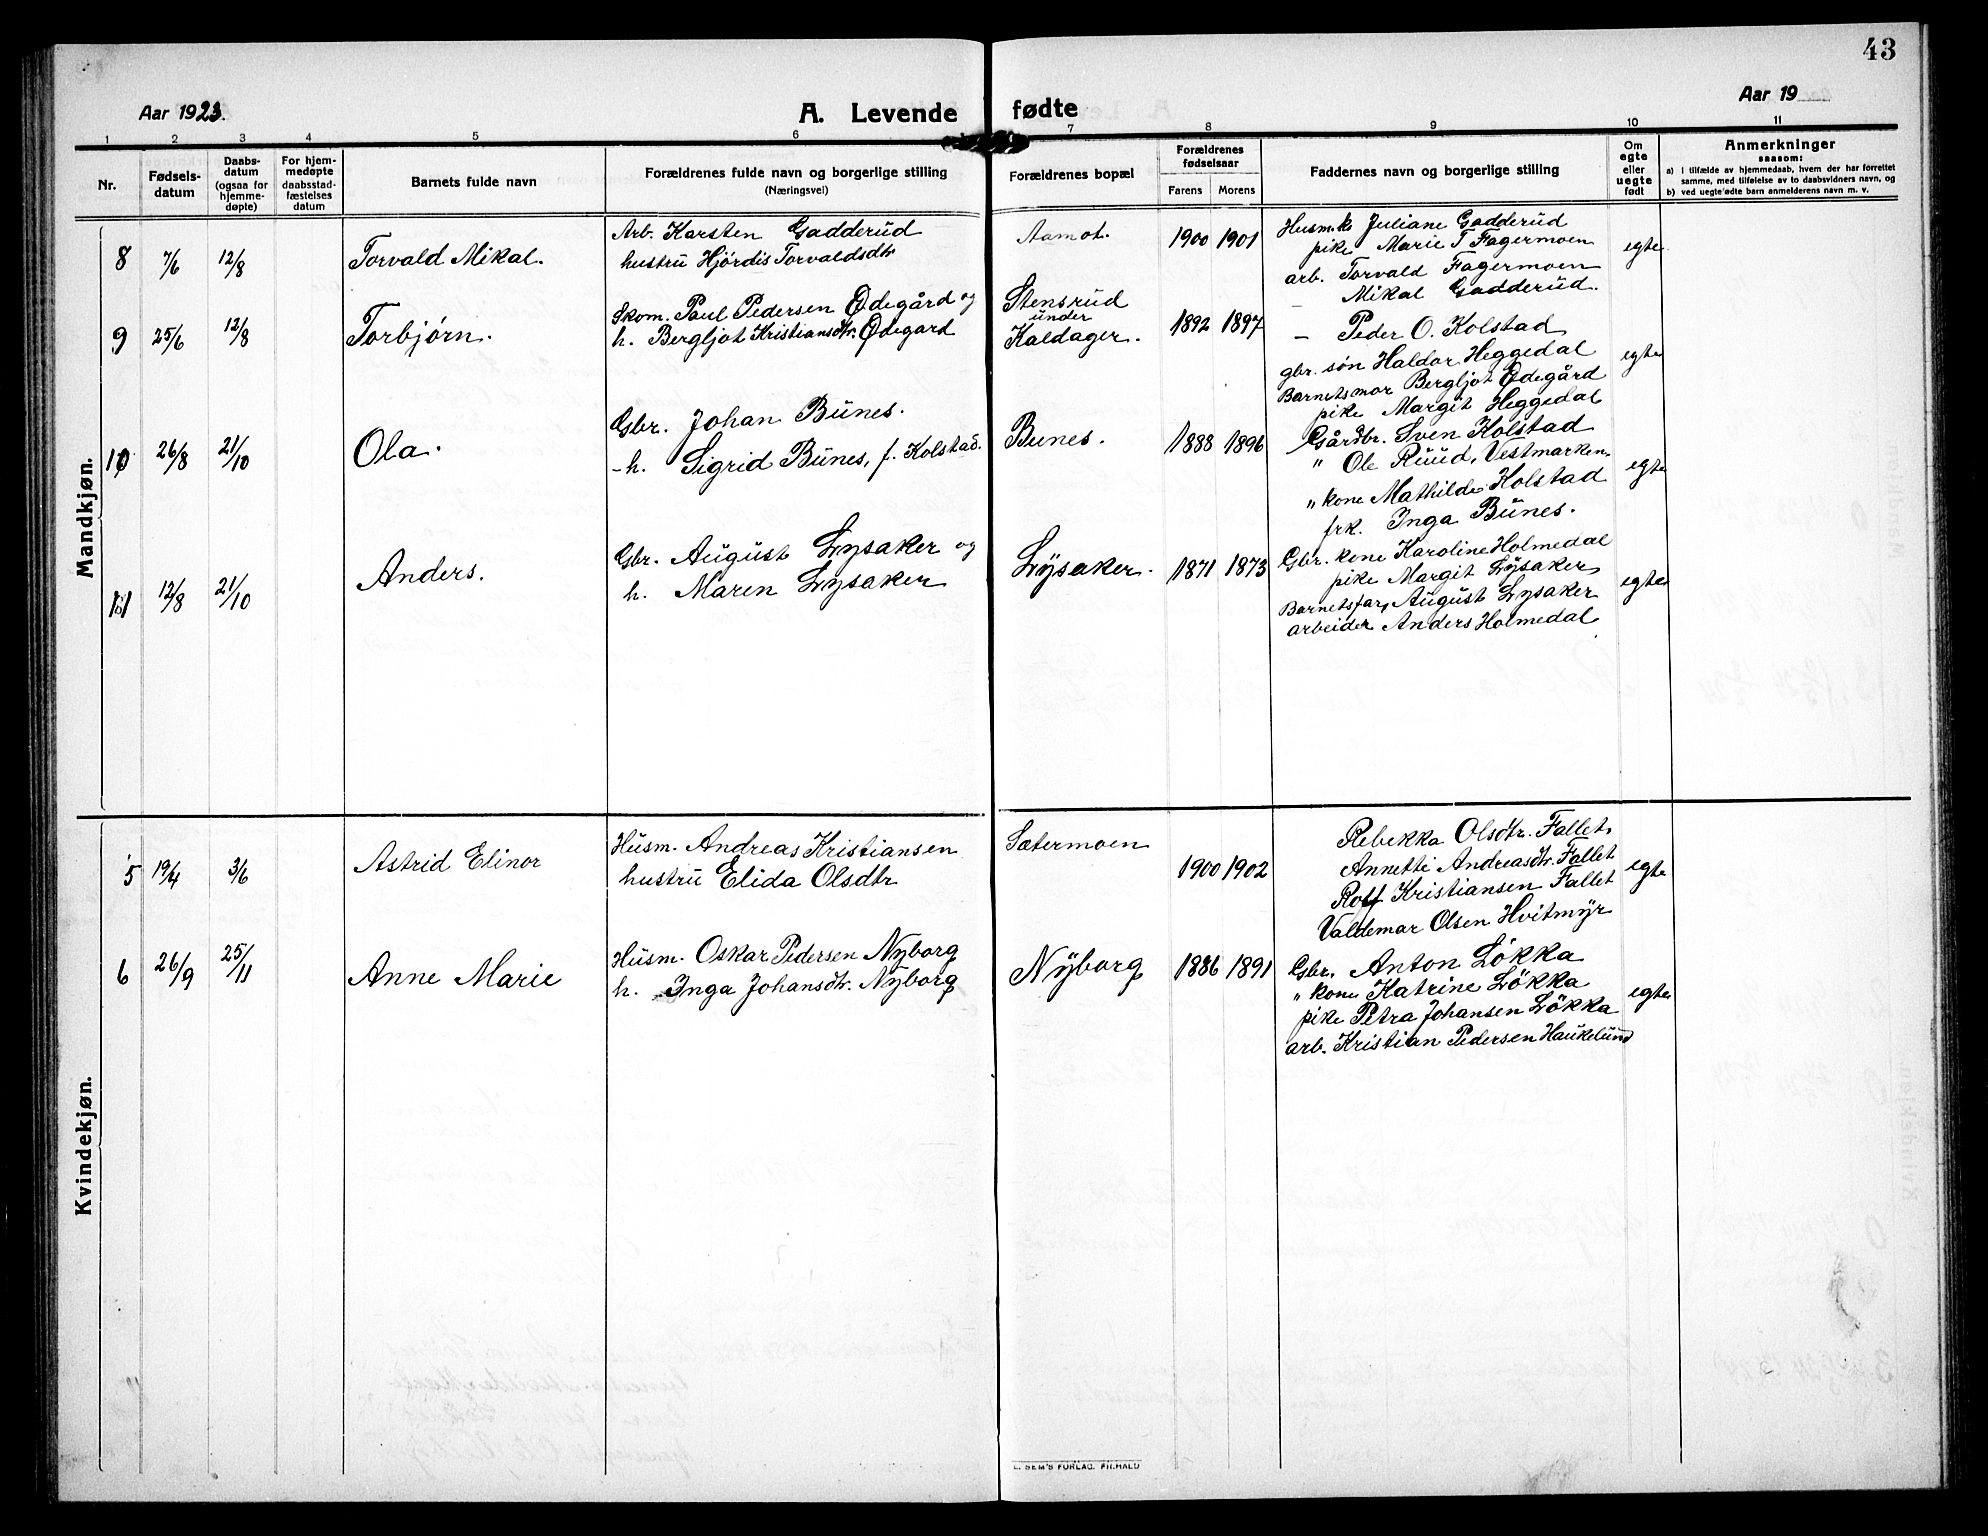 43
Aar 1923.
A. Levende fødte
Aar 19
1 2 3 4 5 6 7 8 9 10 11
Nr.
Fødselsdatum
Daabsdatum (ogsaa for hjemmedøpte)
For hjemmedøpte daabsstadfæstelses datum
Barnets fulde navn
Forældrenes fulde navn og borgerlige stilling
(Næringsvei)
Forældrenes bopæl
Forældrenes fødselsaar
Farens Morens
Faddernes navn og borgerlige stilling
Om egte eller uegte født
Anmerkninger
saasom:
a) i tilfælde av hjemmedaab, hvem der har forrettet
samme, med tilføielse av to daabsvidners navn, og
b) ved uegte fødte barn anmelderens navn m. v.
Mandkjøn.
8 7/6 12/8 Torvald Mikal.
Arb. Karsten Gadderud
hustru Hjördis Torvaldsdtr
Aamot. 1900 1901
Husmk Juliane Gadderud
pike Marie T Fagermoen
arb. Torvald Fagermoen
— Mikal Gadderud.
egte
9 25/6 12/8 Torbjørn.
Skom. Paul Pedersen Ødegård og
h. Bergljot Kristiansdtr. Ødegard
Stensrud
under
Kaldager. 1892 1897
— Peder O. Kolstad
gbr. søn Haldor Heggedal
Barnetsmor Bergljot Ødegård
pike Margit Heggedal
egte
10 26/8 21/10 Ola.
Gbr. Johan Bunes.
-h. Sigrid Bunes, f. Kolstad.
Bunes. 1888 1896
Gårdbr. Sven Kolstad
" Ole Ruud, Vestmarken.
" kone Mathilde Kolstad
frk. Inga Bunes.
egte
11 12/8 21/10 Anders.
Gbr. August Lysaker og
h. Maren Lysaker
Lysaker. 1871 1873
Gbr. kone Karoline Holmedal
pike Margit Lysaker
Barnetsfar, August Lysaker
arbeider Anders Holmedal
egte
Kvindekjøn.
5 19/4 3/6 Astrid Elinor
Husm. Andreas Kristiansen
hustru Elida Olsdtr
Sætermoen 1900 1902
Rebekka Olsdtr. Fallet
Annette Andreasdtr. Fallet
Rolf Kristiansen Fallet
Valdemar Olsen Hvitmyr
egte
6 26/9 25/11 Anne Marie
Husm. Oskar Pedersen Nyborg
h. Inga Johansdtr. Nyborg
Nyborg 1886 1891
Gbr. Anton Lökka
" kone Katrine Lökka
pike Petra Johansen Lökka
arb. Kristian Pedersen Haukelund
egte
E. SEM'S FORLAG. FR.HALD